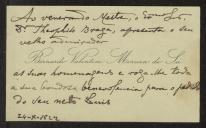 Ao venerando Mestre, o Exmo Sr.
Dr. Theophilo Braga, apresenta o seu
velho admirador
Bernardo Valentim Moreira de Sá
as suas homenagens e roga-lhe toda
a sua bondosa benevolencia para o
do seu neto Luis
24-X-1922